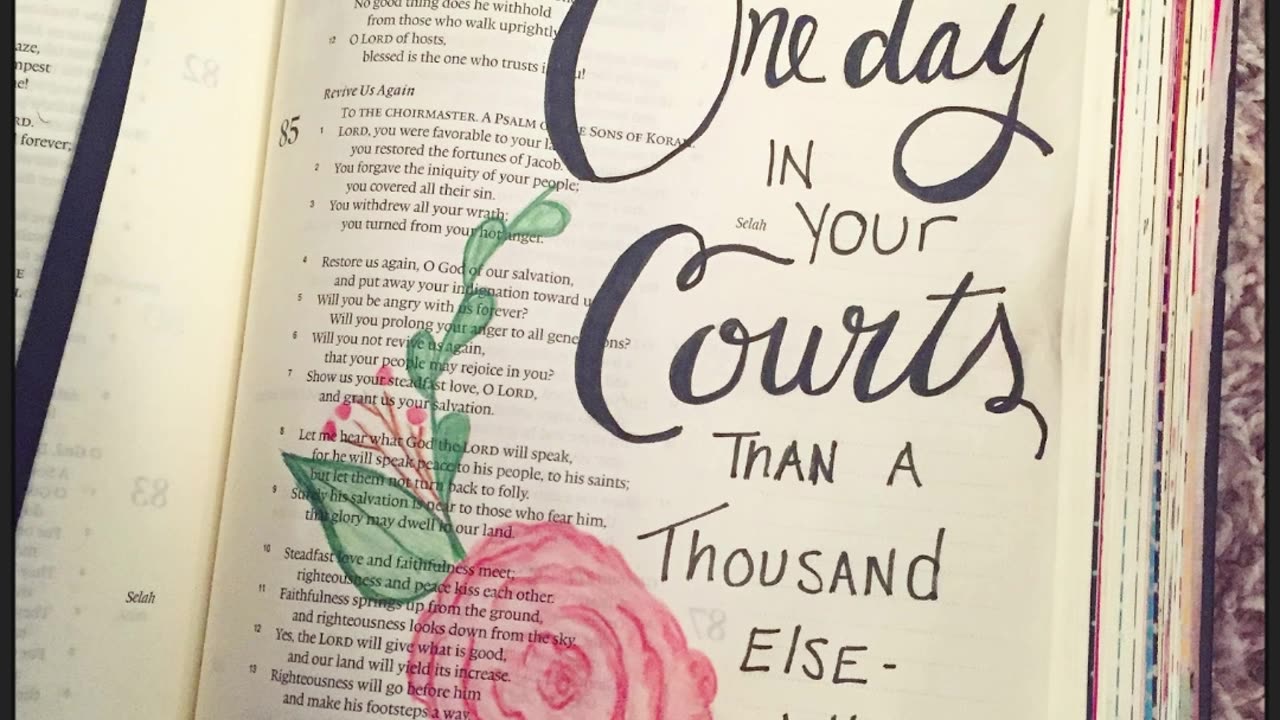 aze,
mpest
e!
RD.
forever;
82
83
Selah
No good thing does he withhold
from those who walk uprightly
12 O LORD of hosts,
blessed is the one who trusts i u!
Revive Us Again
TO THE CHOIRMASTER. A PSALM O E SONS OF KORAH.
85
1 LORD, you were favorable to your la
you restored the fortunes of Jacob.
2 You forgave the iniquity of your people;
you covered all their sin.
3 You withdrew all your wrath;
you turned from your hot anger.
Selah
4 Restore us again, O God of our salvation,
and put away your indignation toward u
5 Will you be angry with us forever?
Will you prolong your anger to all gene ons?
6 Will you not revive us again,
that your people may rejoice in you?
7 Show us your steadfast love, O LORD,
and grant us your salvation.
8 Let me hear what God the LORD will speak,
for he will speak peace to his people, to his saints;
but let them not turn back to folly.
9 Surely his salvation is near to those who fear him,
that glory may dwell in our land.
10 Steadfast love and faithfulness meet;
righteousness and peace kiss each other.
11 Faithfulness springs up from the ground,
and righteousness looks down from the sky.
12 Yes, the LORD will give what is good,
and our land will yield its increase.
13 Righteousness will go before him
and make his footsteps a way.
87
One day
IN
YOUR
Courts
THAN A
THOUSAND
ELSE-